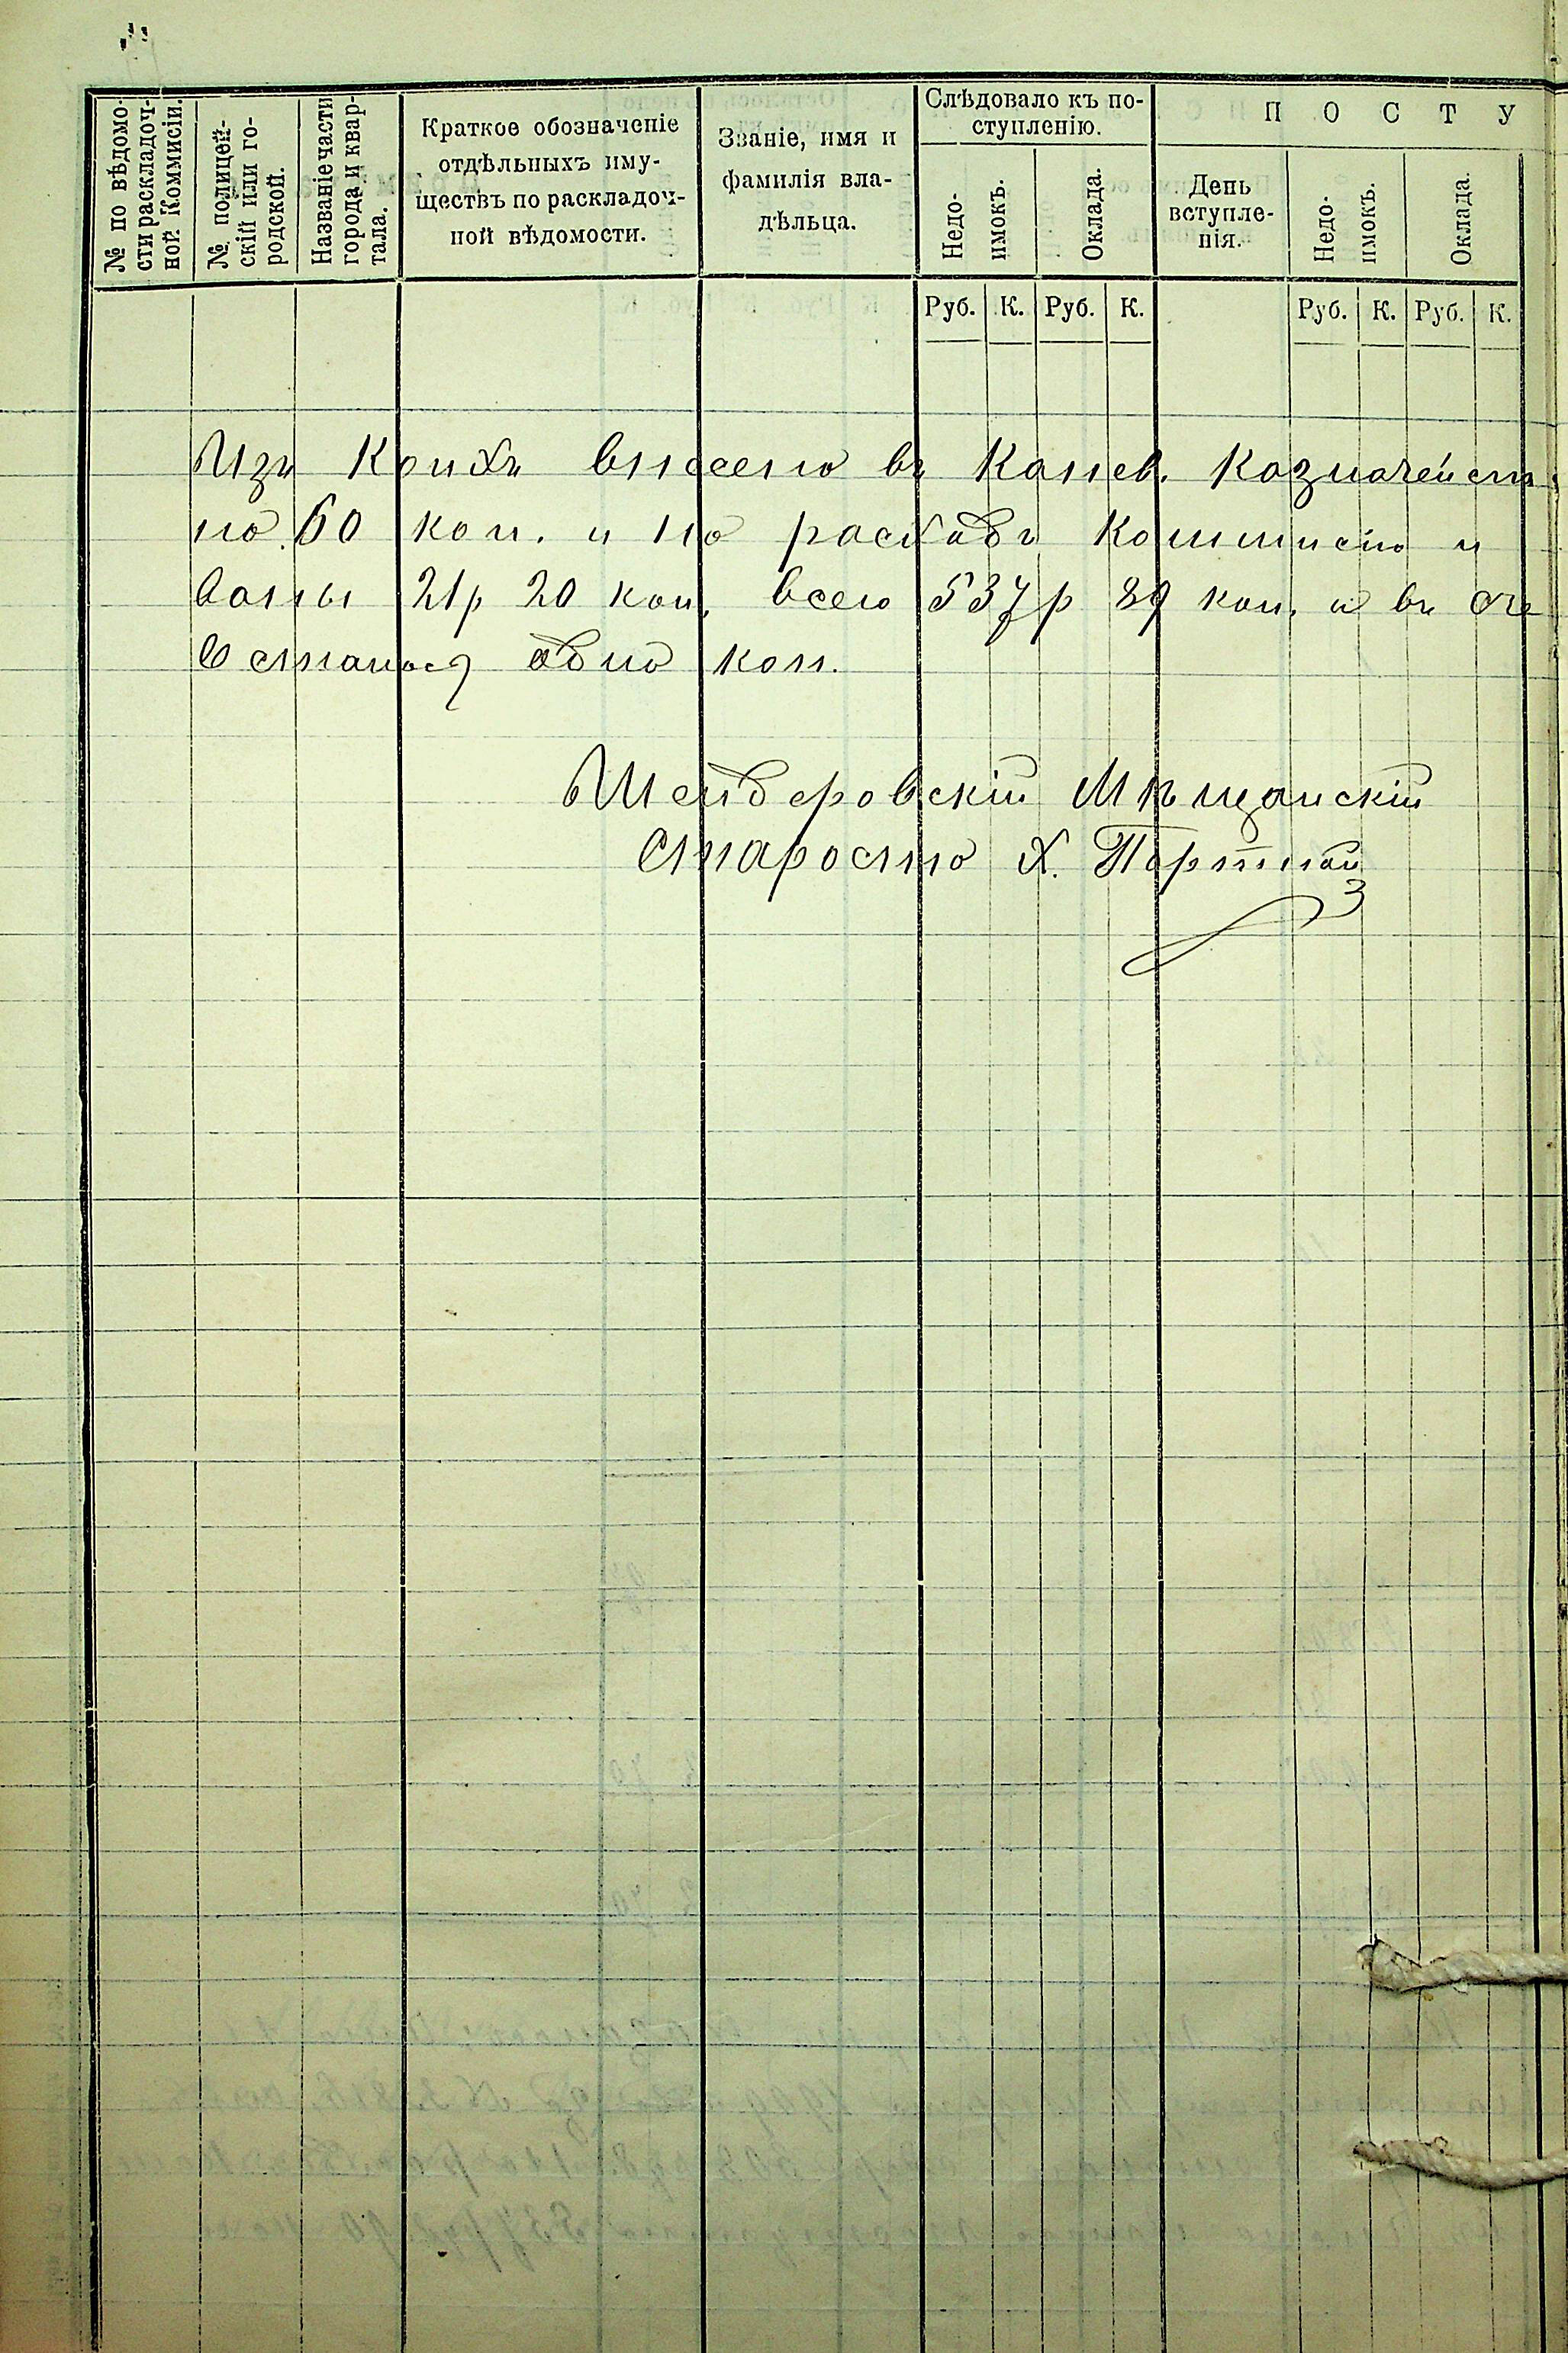 № по вѣдомо-
сти раскладоч-
ной Коммисіи.
№ полицей-
скій или го-
родской.
Названіе части
города и квар-
тала.
Краткое обозначеніе
отдѣльныхъ иму-
ществъ по раскладоч-
ной вѣдомости.
Званіе, имя и
фамилія вла-
дѣльца.
Слѣдовало къ по-
ступленію.
Недо-
имокъ.
Оклада.
П О С Т У
День
вступле-
нія.
Недо-
имокъ.
Оклада.
Руб. К. Руб. К. Руб. К. Руб. К.
Изъ коихъ внесено въ Канев. Казначейст.
60 коп. и на расходъ Коммисію и
21р 20 коп. всего 537р 89 коп. и въ
Остаюся одна коп.
Шендеровскій Мѣщанскій
Староста Х. Портной